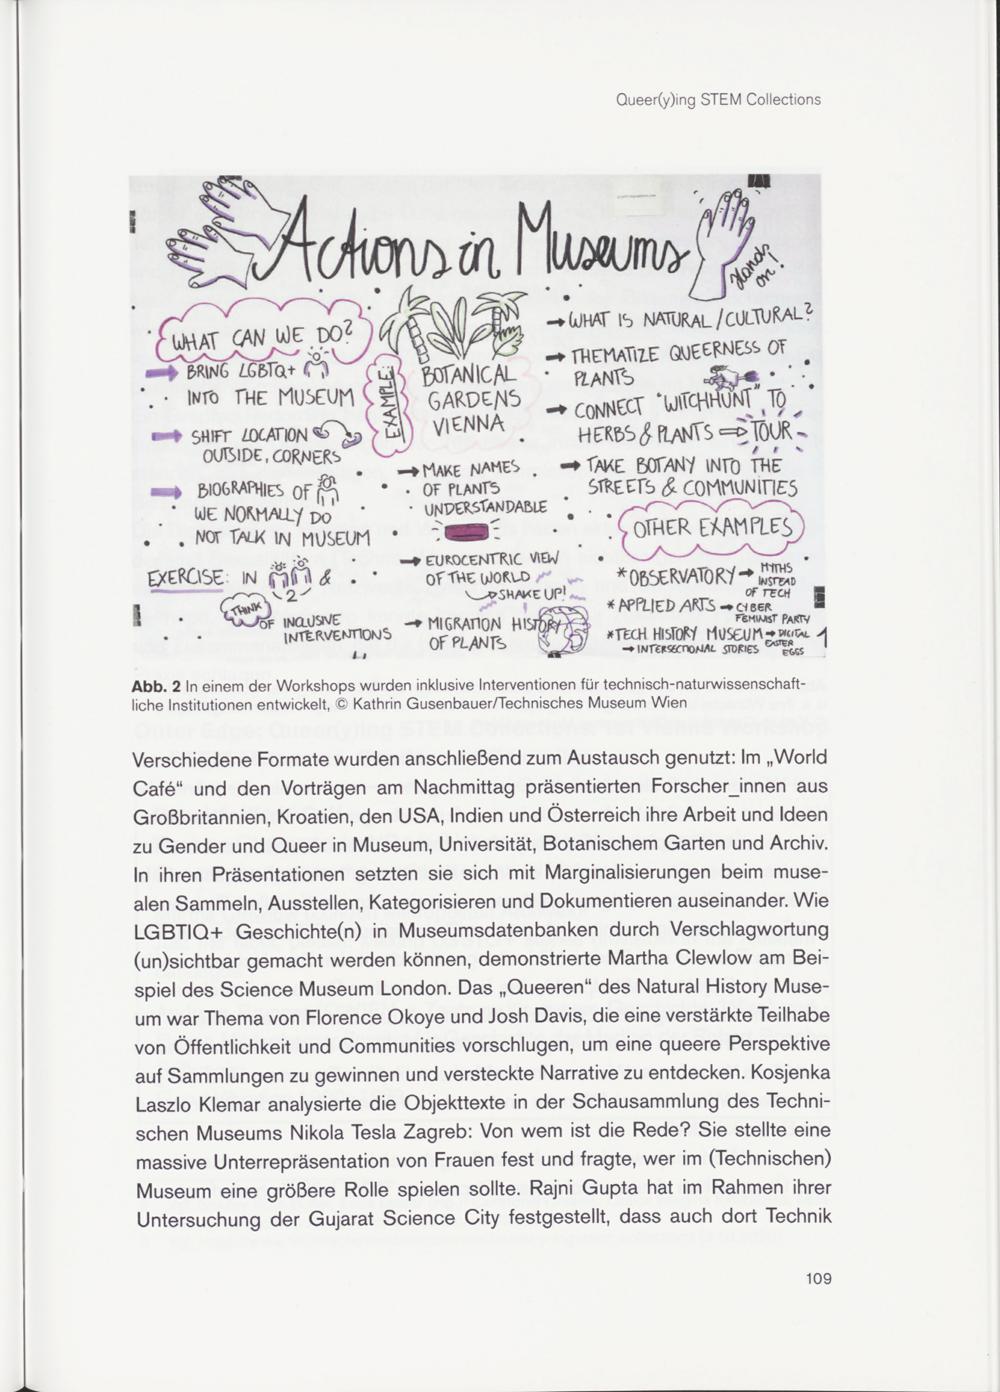 Queer(y)ing STEM Collections
Actions in Museums
Hands on!
WHAT CAN WE DO?
BRING LGBTQ+
INTO THE MUSEUM
SHIFT LOCATION
OUTSIDE, CORNERS
BIOGRAPHIES OF
WE NORMALLY DO
NOT TALK IN MUSEUM
EXERCISE: IN 2 &
THINK
OF INCLUSIVE
INTERVENTIONS
EXAMPLE:
BOTANICAL
GARDENS
VIENNA
→ MAKE NAMES
OF PLANTS
UNDERSTANDABLE
→ EUROCENTRIC VIEW
OF THE WORLD
SHAKE UP!
→ MIGRATION HISTORY
OF PLANTS
→ WHAT IS NATURAL/CULTURAL?
→ THEMATIZE QUEERNESS OF
PLANTS
→ CONNECT "WITCHHUNT" TO
HERBS & PLANTS ⇒ TOUR
→ TAKE BOTANY INTO THE
STREETS & COMMUNITIES
OTHER EXAMPLES
* OBSERVATORY → MYTHS
INSTEAD
OF TECH
* APPLIED ARTS → CYBER
FEMINIST PARTY
* TECH HISTORY MUSEUM → DIGITAL
EASTER
EGGS
→ INTERSECTIONAL STORIES
Abb. 2 In einem der Workshops wurden inklusive Interventionen für technisch-naturwissenschaft-
liche Institutionen entwickelt, © Kathrin Gusenbauer/Technisches Museum Wien
Verschiedene Formate wurden anschließend zum Austausch genutzt: Im „World
Café“ und den Vorträgen am Nachmittag präsentierten Forscher_innen aus
Großbritannien, Kroatien, den USA, Indien und Österreich ihre Arbeit und Ideen
zu Gender und Queer in Museum, Universität, Botanischem Garten und Archiv.
In ihren Präsentationen setzten sie sich mit Marginalisierungen beim muse-
alen Sammeln, Ausstellen, Kategorisieren und Dokumentieren auseinander. Wie
LGBTIQ+ Geschichte(n) in Museumsdatenbanken durch Verschlagwortung
(un)sichtbar gemacht werden können, demonstrierte Martha Clewlow am Bei-
spiel des Science Museum London. Das „Queeren“ des Natural History Muse-
um war Thema von Florence Okoye und Josh Davis, die eine verstärkte Teilhabe
von Öffentlichkeit und Communities vorschlugen, um eine queere Perspektive
auf Sammlungen zu gewinnen und versteckte Narrative zu entdecken. Kosjenka
Laszlo Klemar analysierte die Objekttexte in der Schausammlung des Techni-
schen Museums Nikola Tesla Zagreb: Von wem ist die Rede? Sie stellte eine
massive Unterrepräsentation von Frauen fest und fragte, wer im (Technischen)
Museum eine größere Rolle spielen sollte. Rajni Gupta hat im Rahmen ihrer
Untersuchung der Gujarat Science City festgestellt, dass auch dort Technik
109